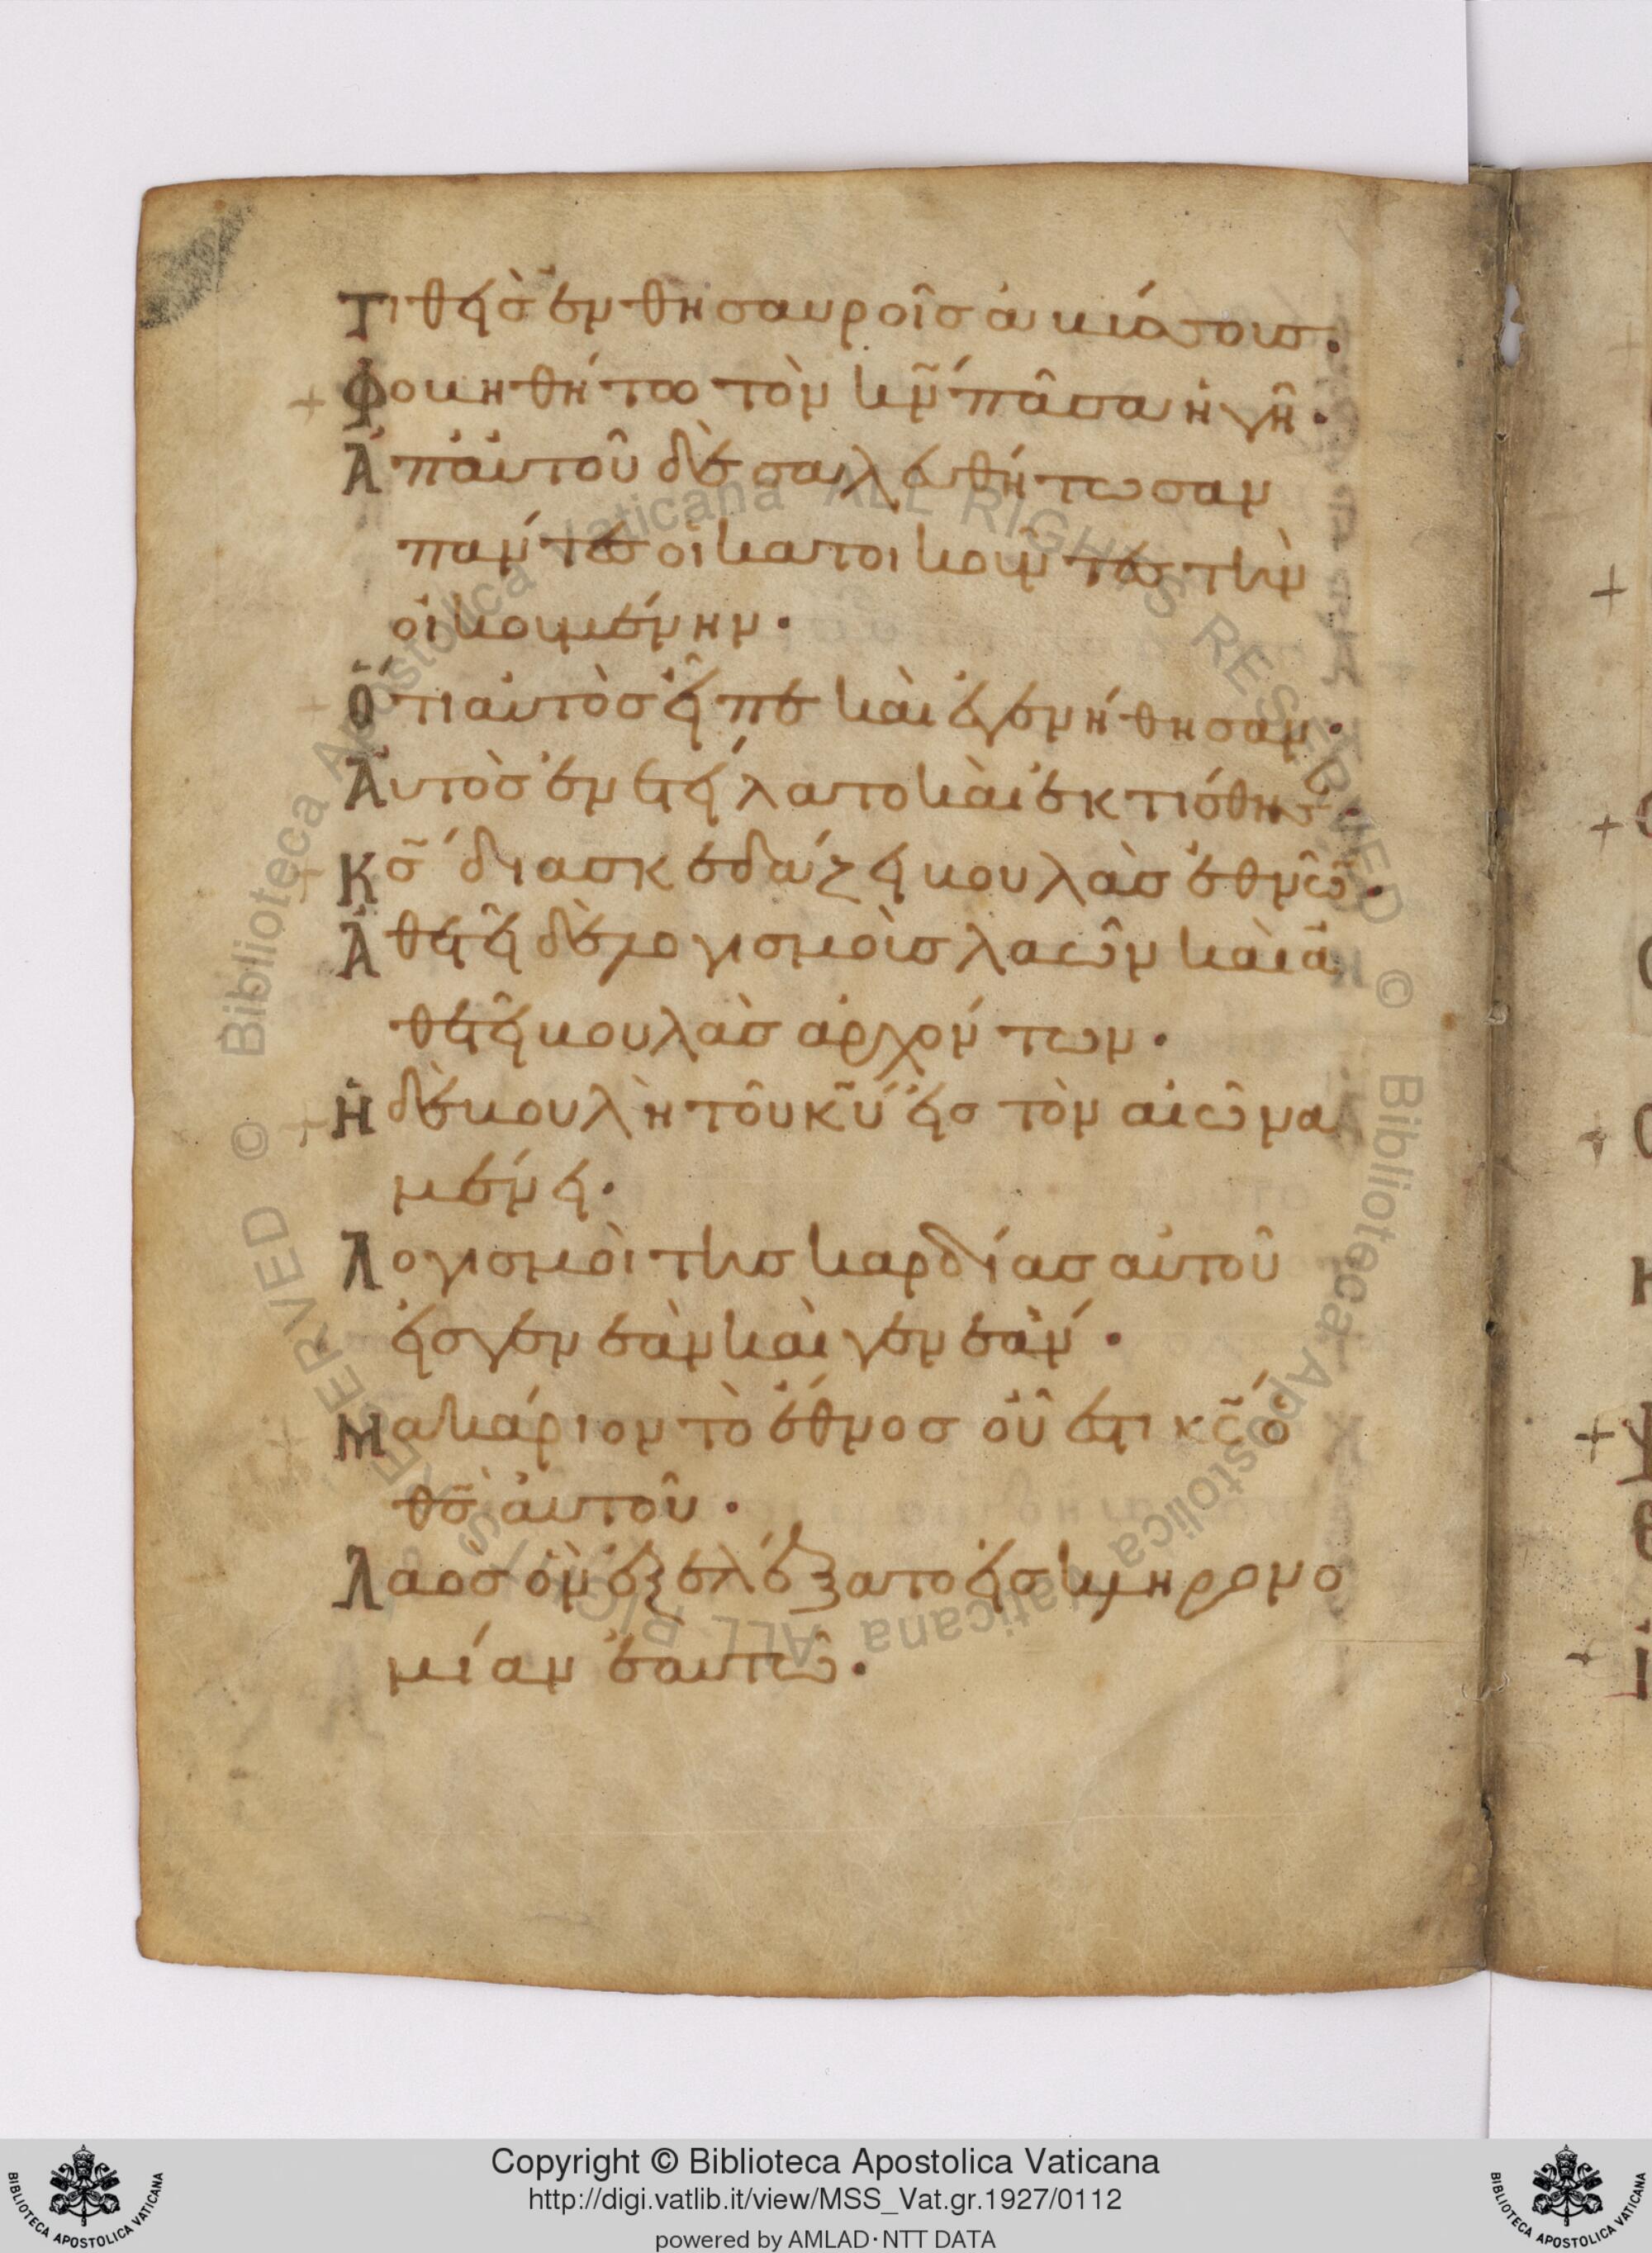 Τιθεὶς ἐν θησαυροῖς ἀβύσσους.
+ Φοβηθήτω τὸν κ̅ν̅ πᾶσα ἡ γῆ.
Ἀπ' αὐτοῦ δὲ σαλευθήτωσαν
πάντες οἱ κατοικοῦντες τὴν
οἰκουμένην.
+ Ὅτι αὐτὸς εἶπε καὶ ἐγενήθησαν.
Αὐτὸς ἐνετείλατο καὶ ἐκτίσθησ.
Κ̅ς̅ διασκεδάζει βουλὰς ἐθνῶ̅.
Ἀθετεῖ δὲ λογισμοὺς λαῶν καὶ ἀ
θετεῖ βουλὰς ἀρχόντων.
+ Ἡ δὲ βουλὴ τοῦ κ̅υ̅ εἰς τὸν αἰῶνα
μένει.
Λογισμοὶ τῆς καρδίας αὐτοῦ
εἰς γενεὰν καὶ γενεάν.
+ Μακάριον τὸ ἔθνος οὗ ἐστι κ̅ς̅ ὁ
θ̅ς̅ αὐτοῦ.
Λαὸς ὃν ἐξελέξατο εἰς κληρονο
μίαν ἑαυτῶ.
Copyright © Biblioteca Apostolica Vaticana
http://digi.vatlib.it/view/MSS_Vat.gr.1927/0112
powered by AMLAD·NTT DATA
BIBLIOTECA APOSTOLICA VATICANA
BIBLIOTECA APOSTOLICA VATICANA